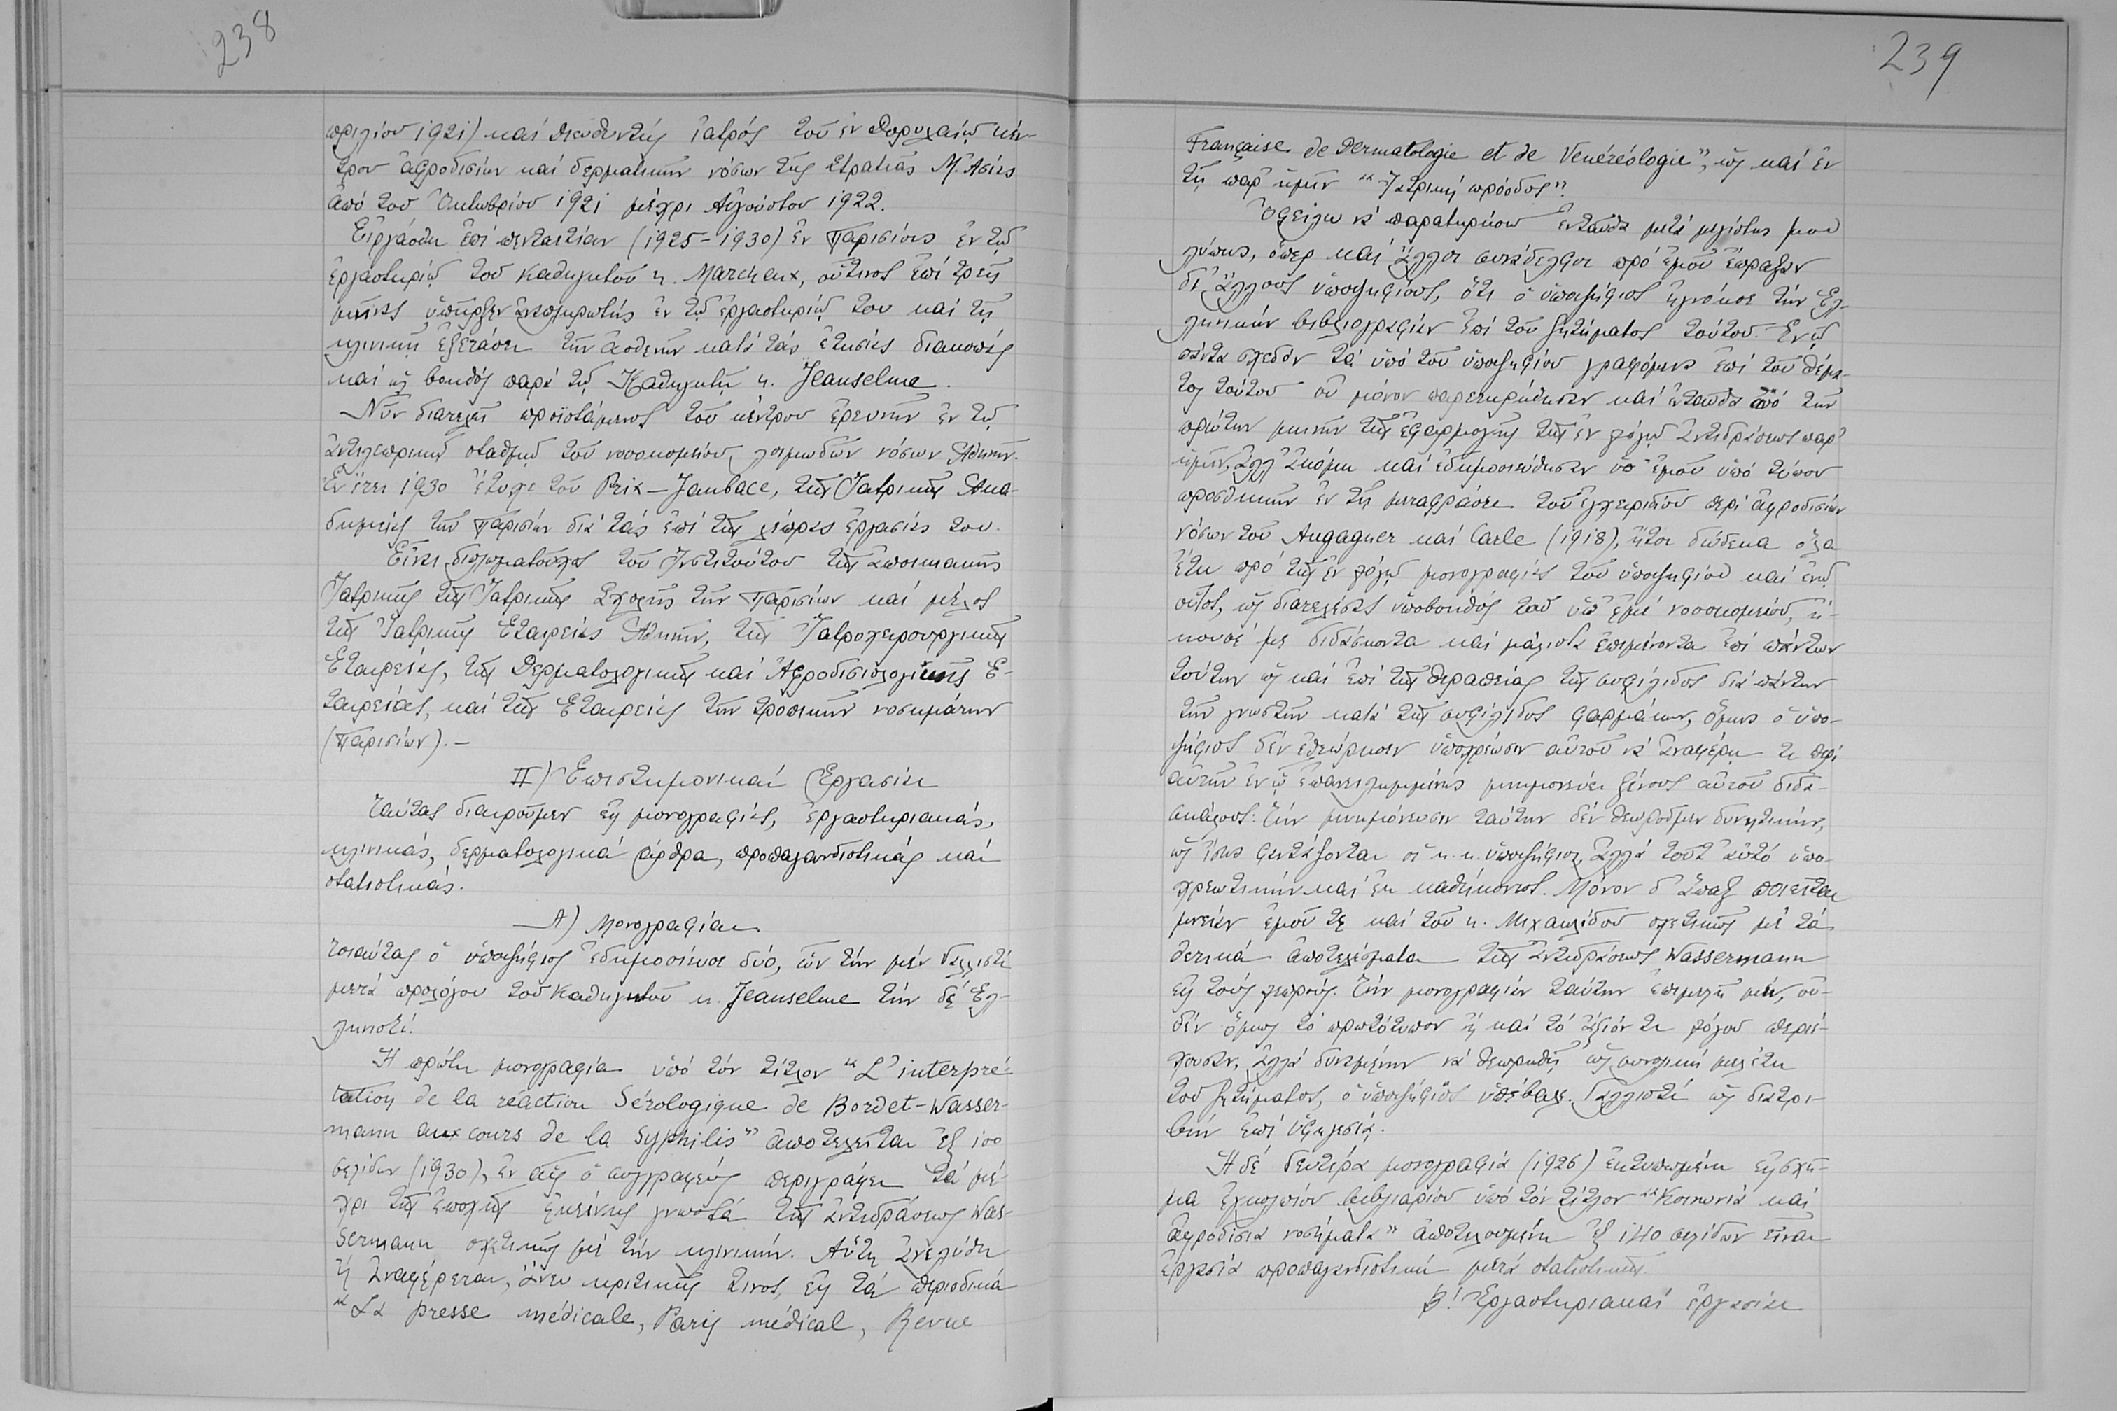 238
πριλίου 1921) καί διευθυντής ἰατρός τοῦ ἐν Δορυλαίῳ κέν-
τρου ἀφροδισίων καί δερματικῶν νόσων τῆς Στρατιᾶς Μ. Ἀσίας
ἀπό τοῦ Ὀκτωβρίου 1921 μέχρι Αὐγούστου 1922.
Εἰργάσθη ἐπί πενταετίαν (1925-1930) ἐν Παρισίοις ἐν τῷ
ἐργαστηρίῳ τοῦ καθηγητοῦ κ. Marcheux, οὗτινος ἐπί τρεῖς
μῆνας ὑπῆρξεν ἀναπληρωτής ἐν τῷ ἐργαστηρίῳ του καί τῇ
κλινικῇ ἐξετάσει τῶν ἀσθενῶν κατά τάς ἐτησίας διακοπάς
καί ὡς βοηθός παρά τῷ Καθηγητῇ κ. Jeanselme.
Νῦν διατελεῖ προϊστάμενος τοῦ κέντρου ἐρευνῶν ἐν τῷ
ἀντιλεπρικῷ σταθμῷ τοῦ νοσοκομείου λοιμωδῶν νόσων Ἀθηνῶν.
Ἐν ἔτει 1930 ἔτυχε τοῦ Prix - Jaubace, τῆς Ἰατρικῆς Ἀκα-
δημείας τῶν Παρισίων διά τάς ἐπί τῆς λέπρας ἐργασίας του.
Εἶναι διπλωματοῦχος τοῦ Ἰνστιτούτου τῆς ἀποικιακῆς
Ἰατρικῆς τῆς Ἰατρικῆς Σχολῆς τῶν Παρισίων καί μέλος
τῆς Ἰατρικῆς Ἑταιρείας Ἀθηνῶν, τῆς Ἰατροχειρουργικῆς
Ἑταιρείας, τῆς Δερματολογικῆς καί Ἀφροδισιολογικῆς Ἑ-
ταιρείας, καί τῆς Ἑταιρείας τῶν τροπικῶν νοσημάτων
(Παρισίων).-
II) Ἐπιστημονικαί Ἐργασίαι
Ταύτας διαιροῦμεν εἰς μονογραφίας, ἐργαστηριακάς,
κλινικάς, δερματολογικά ἄρθρα, προπαγανδιστικάς καί
στατιστικάς.
Α) Μονογραφίαι.
Τοιαύτας ὁ ὑποψήφιος ἐδημοσίευσε δύο, ὧν τήν μέν Γαλλιστί
μετά προλόγου τοῦ Καθηγητοῦ κ. Jeanselme τήν δέ Ἑλ-
ληνιστί.
Ἡ πρώτη μονογραφία ὑπό τόν τίτλον "L'interpré-
tation de la reaction Sérologique de Bordet-Wasser-
mann aux cours de la Syphilis" ἀποτελεῖται ἐξ 100
σελίδων (1930), ἐν αἷς ὁ συγγραφεύς περιγράφει τά μέ-
χρι τῆς ἐποχῆς ἐκείνης γνωστά τῆς ἀντιδράσεως Was-
sermann σχετικῶς μέ τήν κλινικήν. Αὕτη ἀνελύθη
ἤ ἀναφέρεται, ἄνευ κριτικῆς τινος, εἰς τά περιοδικά
"La presse médicale, Paris médical, Revue
239
Française de Dermatologie et de Venéréologie", ὡς καί ἐν
τῇ παρ' ἡμῖν "Ἰατρική πρόοδος".
Ὀφείλω νά παρατηρήσω ἐνταῦθα μετά μεγίστης μου
λύπης, ὅπερ καί ἄλλοι συνάδελφοι πρό ἐμοῦ ἔπραξαν
δι' ἄλλους ὑποψηφίους, ὅτι ὁ ὑποψήφιος ἠγνόησε τήν Ἑλ-
ληνικήν βιβλιογραφίαν ἐπί τοῦ ζητήματος τούτου. Ἐνῷ
πάντα σχεδόν τά ὑπό τοῦ ὑποψηφίου γραφόμενα ἐπί τοῦ θέμα-
τος τούτου οὐ μόνον παρετηρήθησαν καί ἐνταῦθα ἀπό τῶν
πρώτων μηνῶν τῆς ἐφαρμογῆς τῆς ἐν λόγῳ ἀντιδράσεως παρ'
ἡμῖν, ἀλλ' ἀκόμη καί ἐδημοσιεύθησαν ὑπ' ἐμοῦ ὑπό τύπον
προσθηκῶν ἐν τῇ μεταφράσει τοῦ ἐγχειριδίου περί ἀφροδισίων
νόσων τοῦ Augagner καί Carle (1918), ἤτοι δώδεκα ὅλα
ἔτη πρό τῆς ἐν λόγῳ μονογραφίας τοῦ ὑποψηφίου καί ἐνῷ
οὗτος, ὡς διατελέσας ὑποβοηθός τοῦ ὑπ' ἐμέ νοσοκομείου, ἤ-
κουσέ με διδάσκοντα καί μάλιστα ἐπιμένοντα ἐπί πάντων
τούτων ὡς καί ἐπί τῆς θεραπείας τῆς συφιλίδος διά πάντων
τῶν γνωστῶν κατά τῆς συφιλίδος φαρμάκων, ὅμως ὁ ὑπο-
ψήφιος δέν ἐθεώρησεν ὑποχρέωσιν αὐτοῦ νά ἀναφέρῃ τι περί
αὐτῶν ἐν ᾧ ἐπανειλημμένως μνημονεύει ξένους αὐτοῦ διδα-
σκάλους. Τήν μνημόνευσιν ταύτην δέν θεωροῦμεν δυνητικήν,
ὡς ἴσως φαντάζονται οἱ κ.κ. ὑποψήφιοι, ἀλλά τοῦτ' αὐτό ὑπο-
χρεωτικήν καί ἐκ καθήκοντος. Μόνον δ' ἅπαξ ποιεῖται
μνείαν ἐμοῦ τε καί τοῦ κ. Μιχαηλίδου σχετικῶς μέ τά
θετικά ἀποτελέσματα τῆς ἀντιδράσεως Wassermann
εἰς τούς λεπρούς. Τήν μονογραφίαν ταύτην ἐπιμελῆ μέν, οὐ-
δέν ὅμως τό πρωτότυπον ἤ καί τό ἄξιόν τι λόγου περιέ-
χουσαν, ἀλλά δυναμένην νά θεωρηθῇ ὡς συνολική μελέτη
τοῦ ζητήματος, ὁ ὑποψήφιος ὑπέβαλε Γαλλιστί ὡς διατρι-
βήν ἐπί ὑφηγεσίᾳ.
Ἡ δέ δευτέρα μονογραφία (1926) ἐκτυπωμένη εἰς σχῆ-
μα ἐγκολπίου βιβλιαρίου ὑπό τόν τίτλον "Κοινωνία καί
ἀφροδίσια νοσήματα" ἀποτελουμένη ἐξ 140 σελίδων εἶναι
ἐργασία προπαγανδιστική μετά στατιστικῆς.
Β! Ἐργαστηριακαί ἐργασίαι